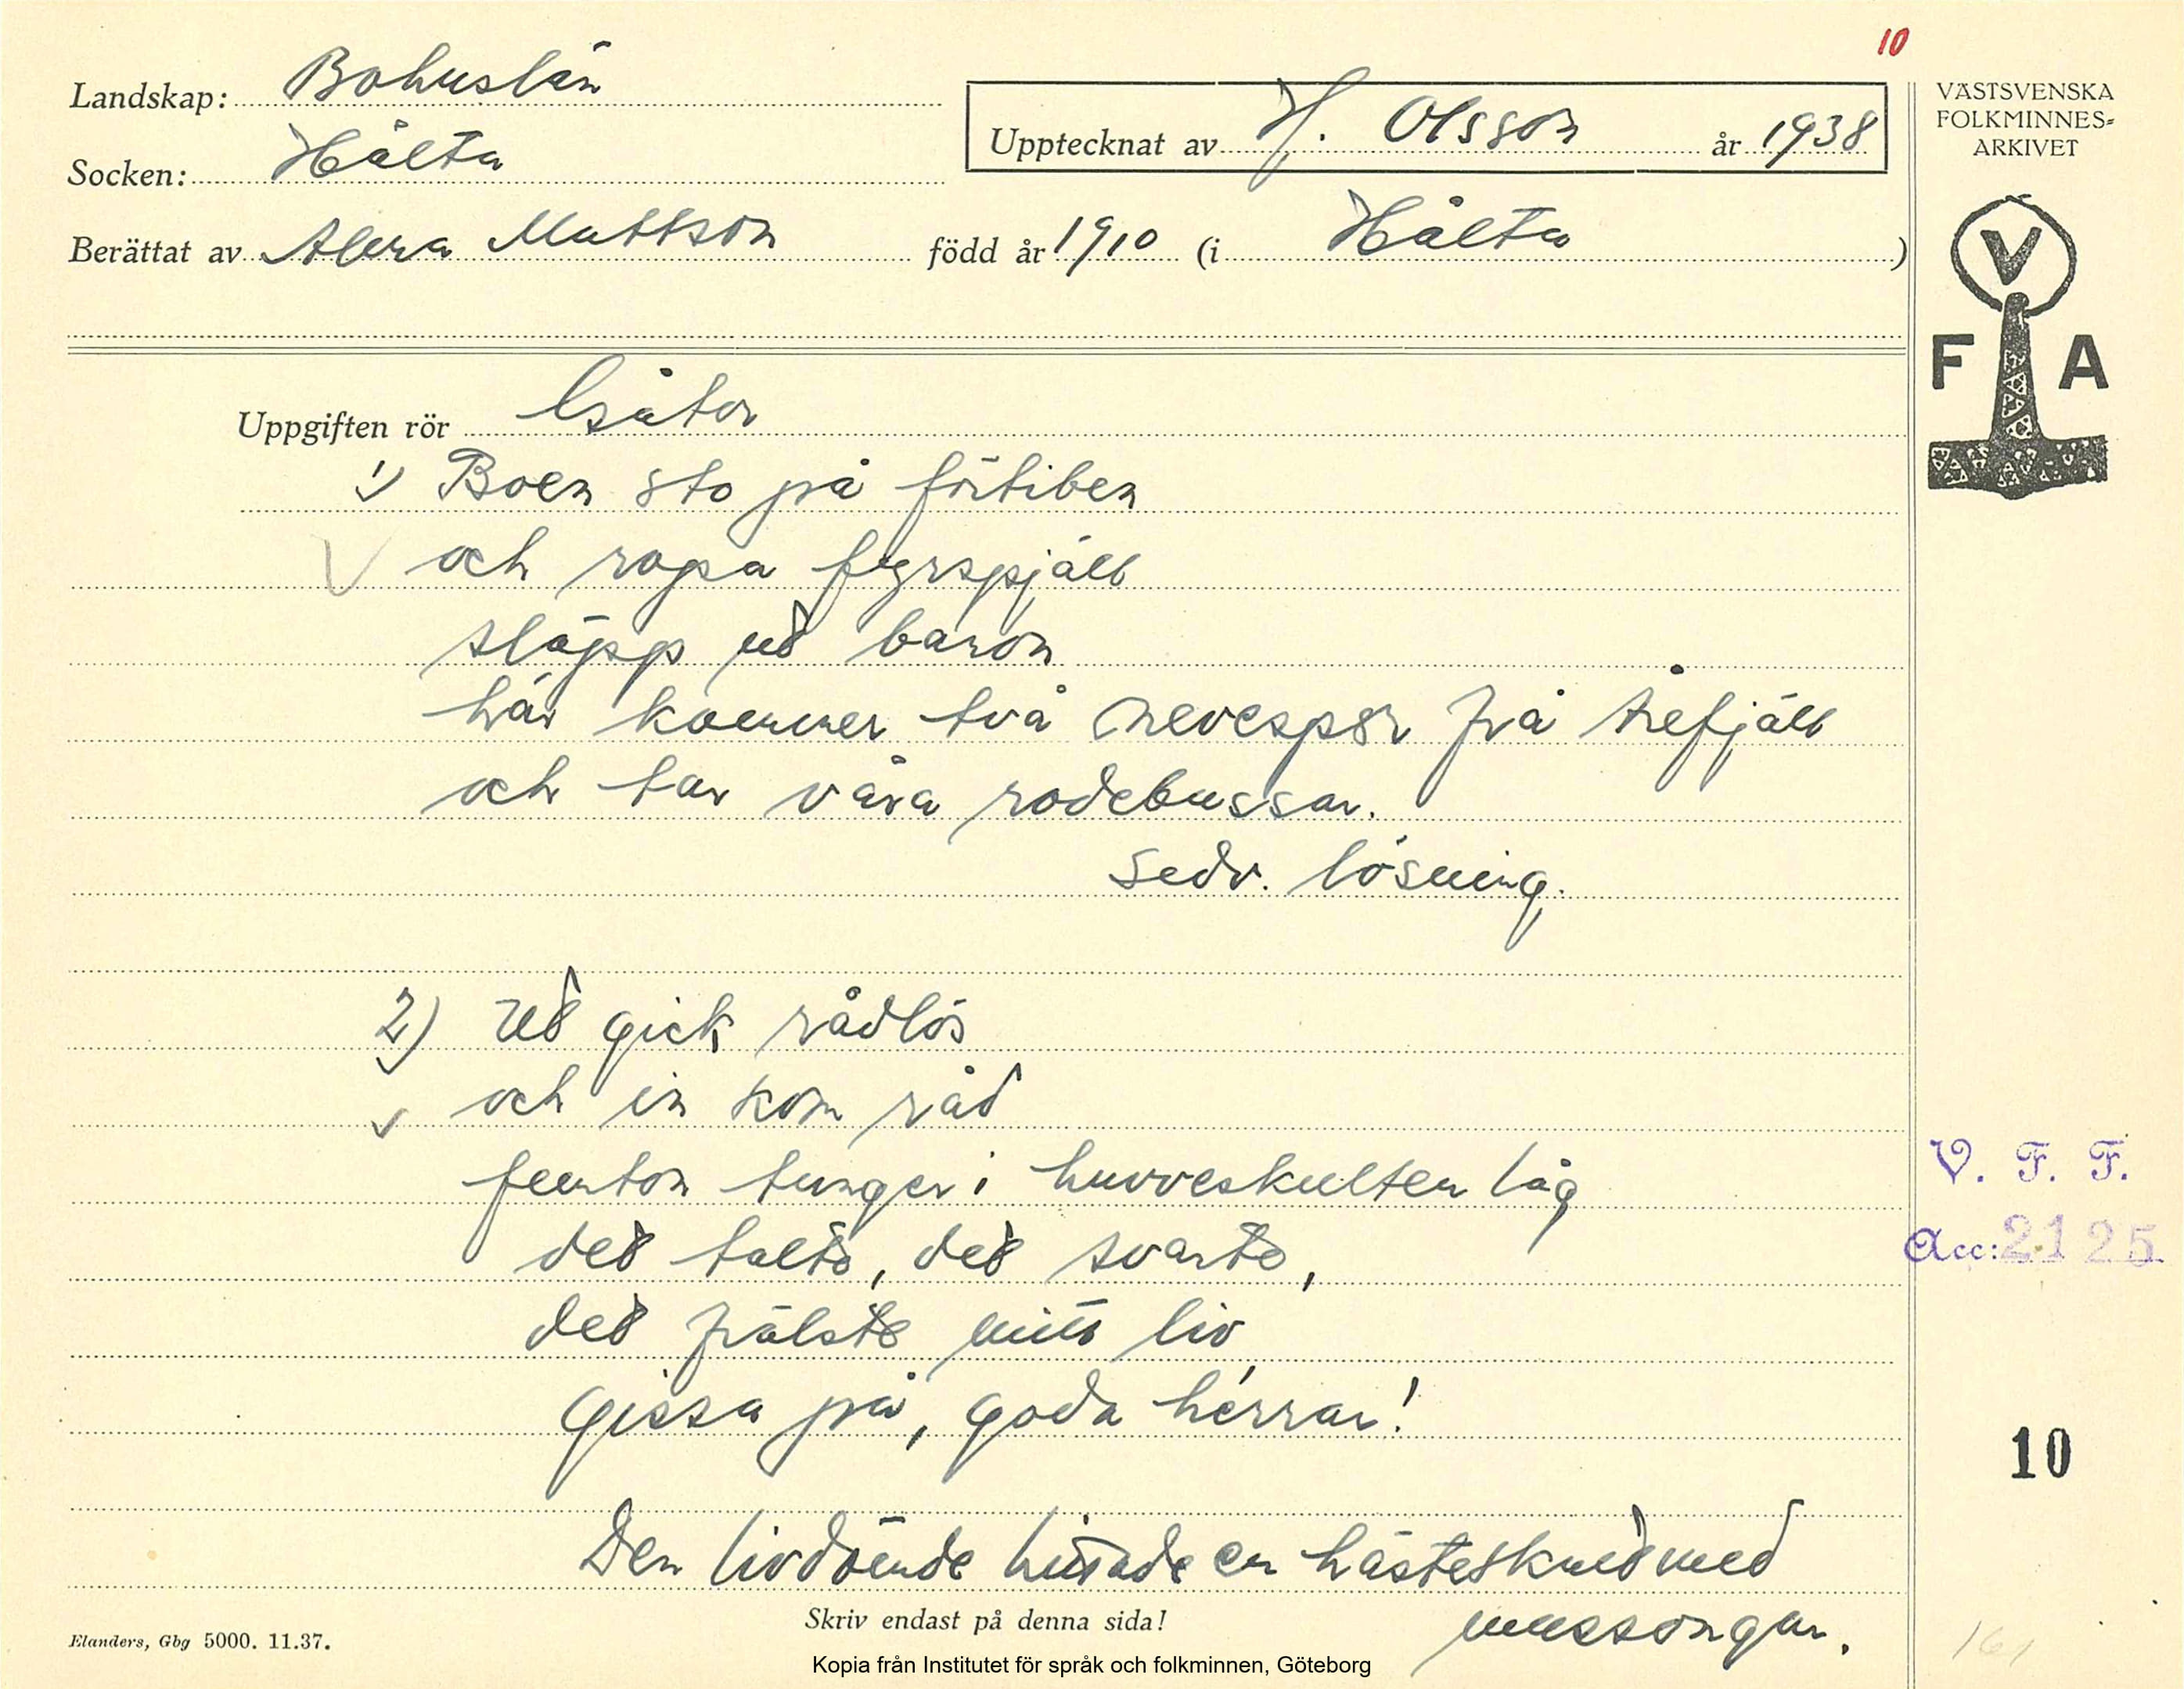 10
Landskap: Bohuslän
Socken: Hålta
Upptecknat av H. Olsson år 1938
Berättat av Alma Mattson född år 1910 (i Hålta)
VÄSTSVENSKA
FOLKMINNES-
ARKIVET
V
F A
Uppgiften rör Gåtor
1) Boen sto på förtiben
och ropa fyrspjäll
släpp ut baron
här kommer två nevespör frå trefjäll
och tar våra rodebussar.
Sedv. lösning.
2) Ut gick rådlös
och in kom råd
femton tunger i huvveskulten låg
det talte, det svarte,
det frälste mitt liv
gissa på, goda herrar!
Den livdömde hittade en hästeskult med
mussongar.
V. F. F.
Acc: 2125
10
Skriv endast på denna sida!
Elanders, Gbg 5000. 11.37.
161
Kopia från Institutet för språk och folkminnen, Göteborg